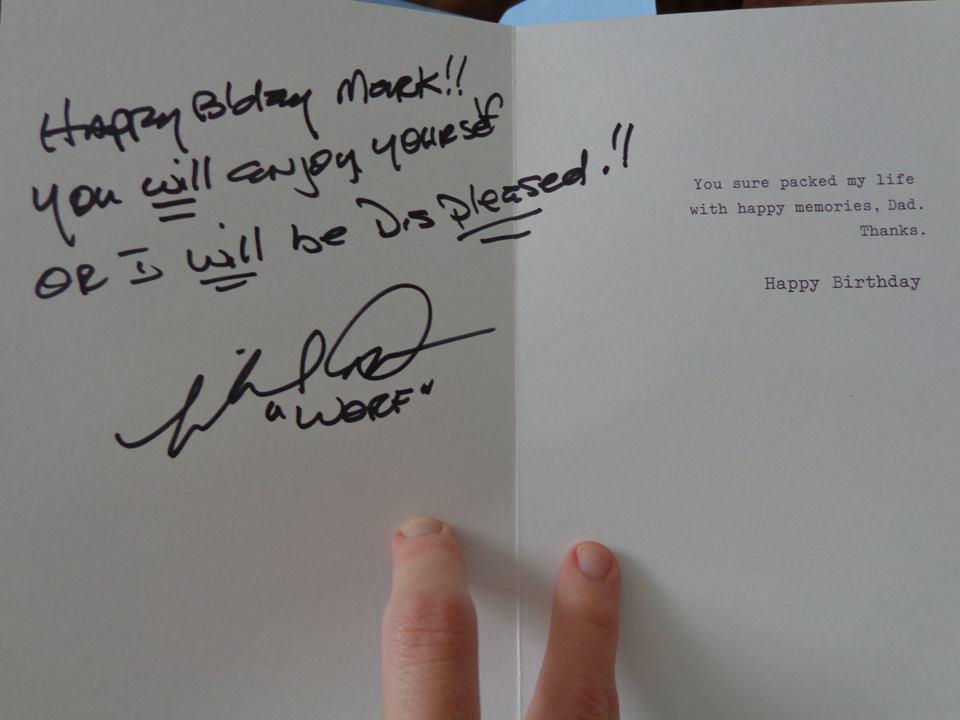 Happy B'day Mark!!
You will enjoy yourself
OR I will be Displeased!!
"WORF"
You sure packed my life
with happy memories, Dad.
Thanks.
Happy Birthday